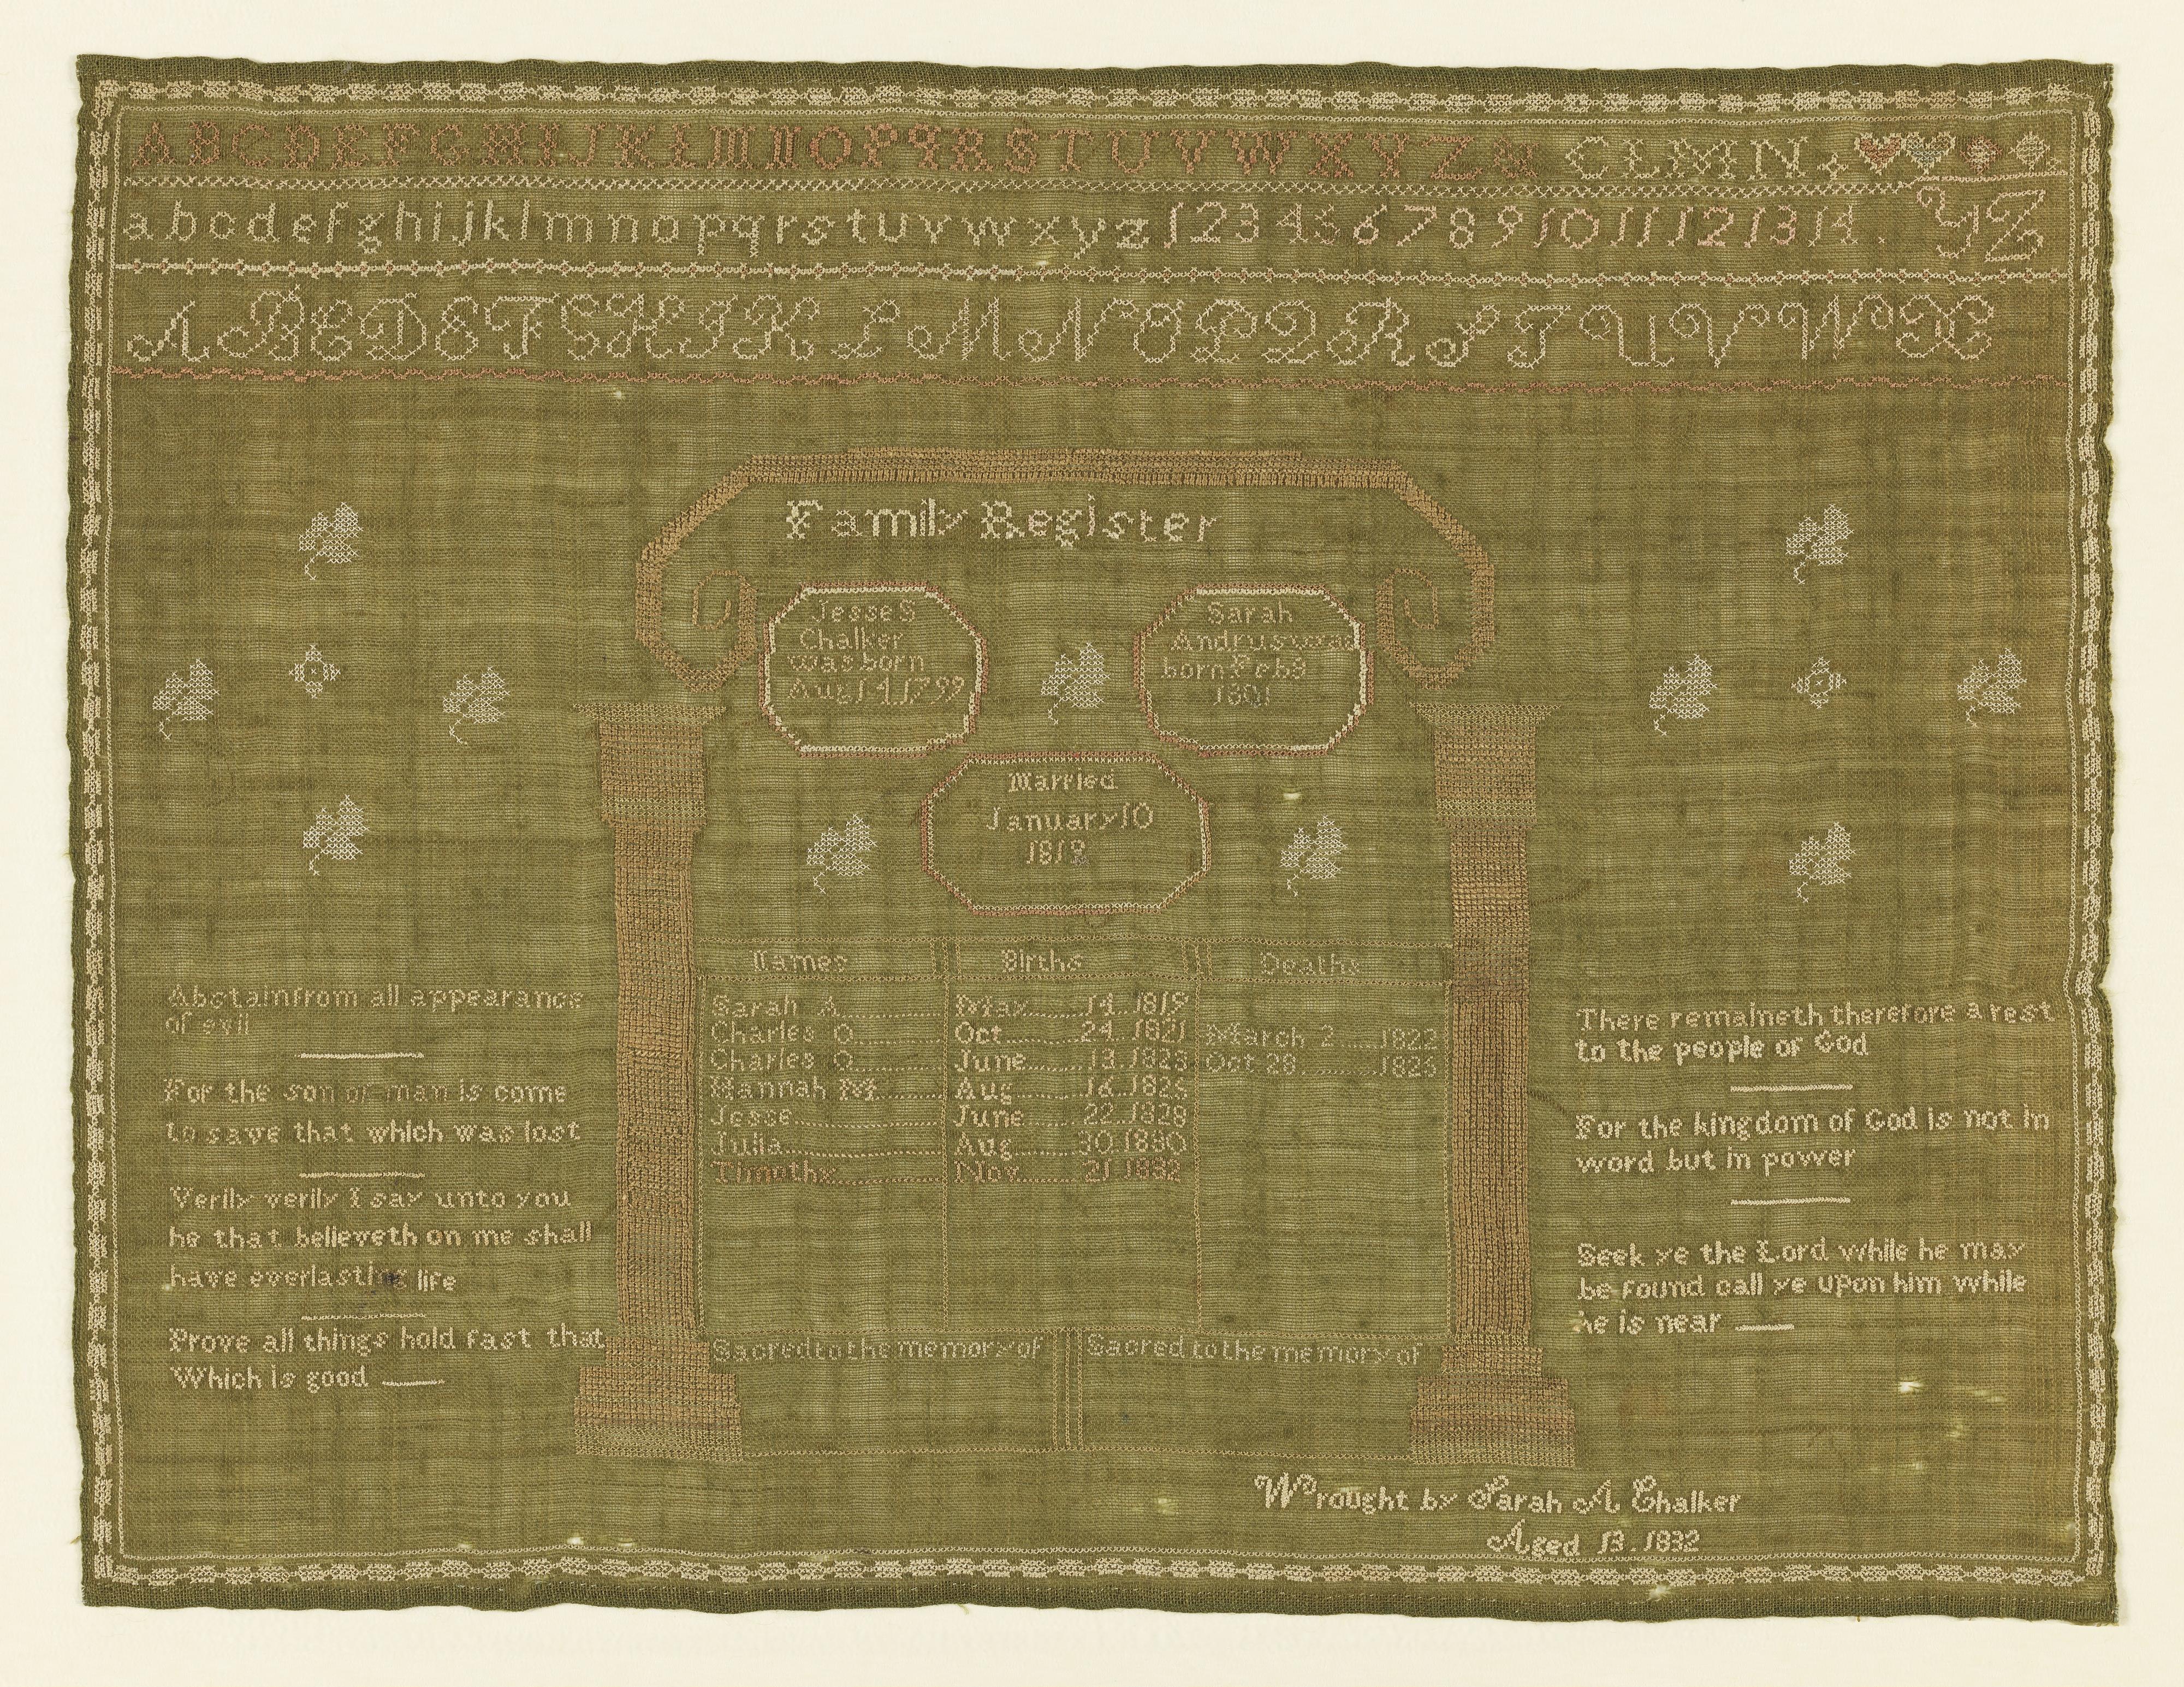 A B C D E F G H I J K L M N O P Q R S T U V W X Y Z & C L M N
a b c d e f g h i j k l m n o p q r s t u v w x y z 1 2 3 4 5 6 7 8 9 10 11 12 13 14 . Y Z
A B C D E F G H I K L M N O P Q R S T U V W X
Family Register
Jesse S
Chalker
was born
Aug 14 1799
Sarah
Andrus was
born Feb 3
1801
Married
January 10
Names Births Deaths
Sarah A May 14 1819
Charles O Oct 24 1821 March 2 1822
Charles O June 13 1823 Oct 28 1825
Hannah M Aug 16 1825
Jesse June 22 1828
Julia Aug 30 1830
Timothy Nov 21 1832
Sacred to the memory of Sacred to the memory of
Abstain from all appearance
of evil
For the son of man is come
to save that which was lost
Verily verily I say unto you
he that believeth on me shall
have everlasting life
Prove all things hold fast that
Which is good
There remaineth therefore a rest
to the people of God
For the kingdom of God is not in
word but in power
Seek ye the Lord while he may
be found call ye upon him while
he is near
Wrought by Sarah A Chalker
Aged 13 . 1832